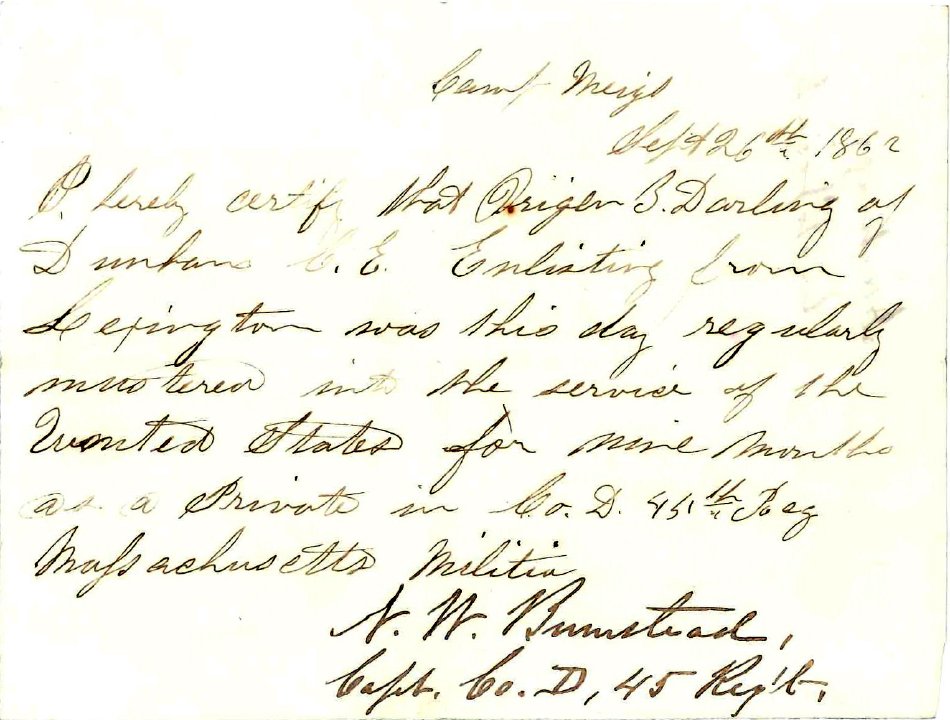 Camp Meigs
Sept 26th 1862
I hereby certify that Origen B. Darling of
Dunham C. E. Enlisting from
Lexington was this day regularly
mustered into the service of the
United States for nine months
as a Private in Co. D. 45th Reg
Massachusetts Militia
N. W. Bumstead,
Capt. Co. D, 45 Reg't.